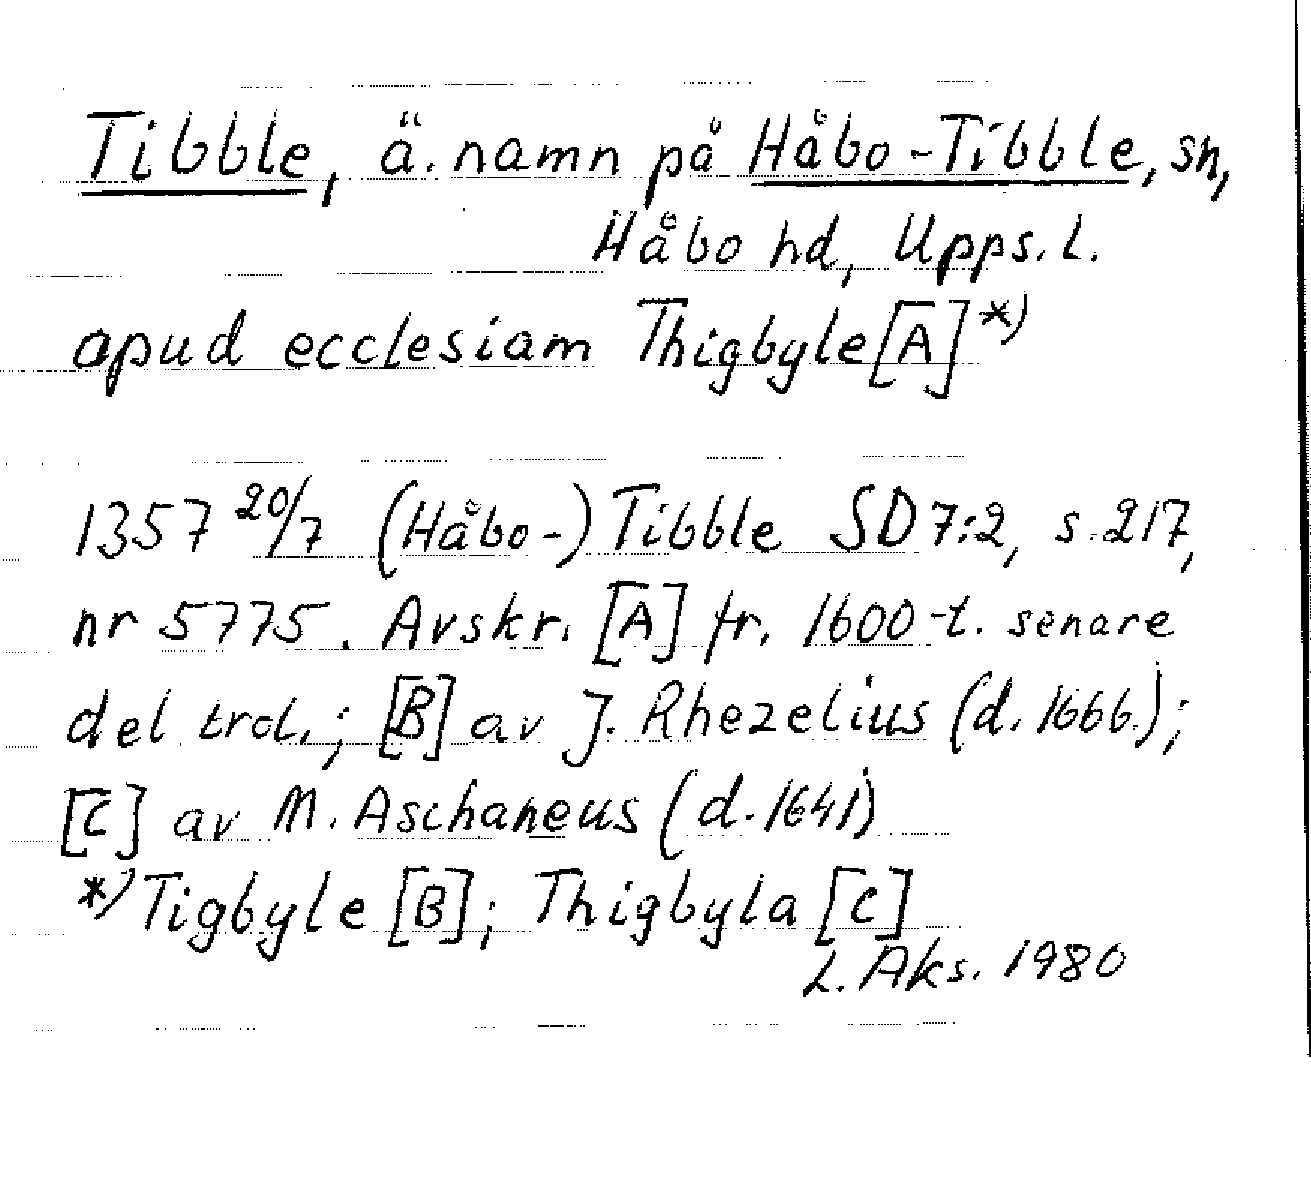 Tibble, ä. namn på Håbo-Tibble, sn,
Håbo hd, Upps. L.
apud ecclesiam Thigbyle [A] *)
1357 20/7 (Håbo-) Tibble SD 7:2, s. 217,
nr 5775. Avskr. [A] fr. 1600-t. senare
del trol.; [B] av J. Rhezelius (d. 1666.);
[C] av M. Aschaneus (d. 1641)
*) Tigbyle [B]; Thigbyla [C]
L. Aks. 1980